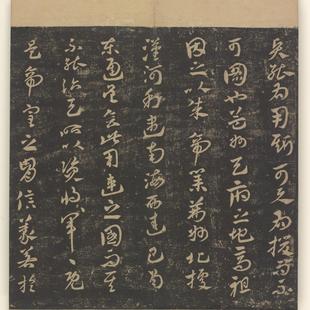 賢能為用此可與為援而不
可圖也益州天府之地高祖
因之以成帝業荊州北據
漢沔利盡南海西連巴蜀
東通吳會此用武之國而其
不能治天所以資將軍々既
是帝室之胄信義著於